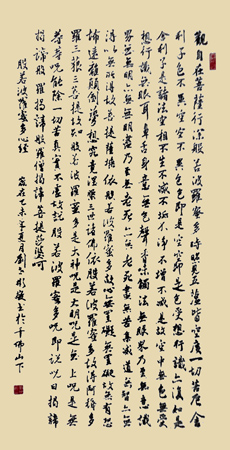 觀自在菩薩行深般若波羅蜜多時照見五蘊皆空度一切苦厄舍
利子色不異空空不異色色即是空空即是色受想行識亦復如是
舍利子是諸法空相不生不滅不垢不淨不增不減是故空中無色無受
想行識無眼耳鼻舌身意無色聲香味觸法無眼界乃至無意識
界無無明亦無無明盡乃至無老死亦無老死盡無苦集滅道無智亦無
得以無所得故菩提薩埵依般若波羅蜜多故心無罣礙無罣礙故無有恐
怖遠離顛倒夢想究竟涅槃三世諸佛依般若波羅蜜多故得阿耨多
羅三藐三菩提故知般若波羅蜜多是大神咒是大明咒是無上咒是無
等等咒能除一切苦真實不虛故說般若波羅蜜多咒即說咒曰揭諦
揭諦般羅揭諦般羅僧揭諦菩提莎婆呵
般若波羅蜜多心經
歲在乙未年夏月劉敬書於千佛山下